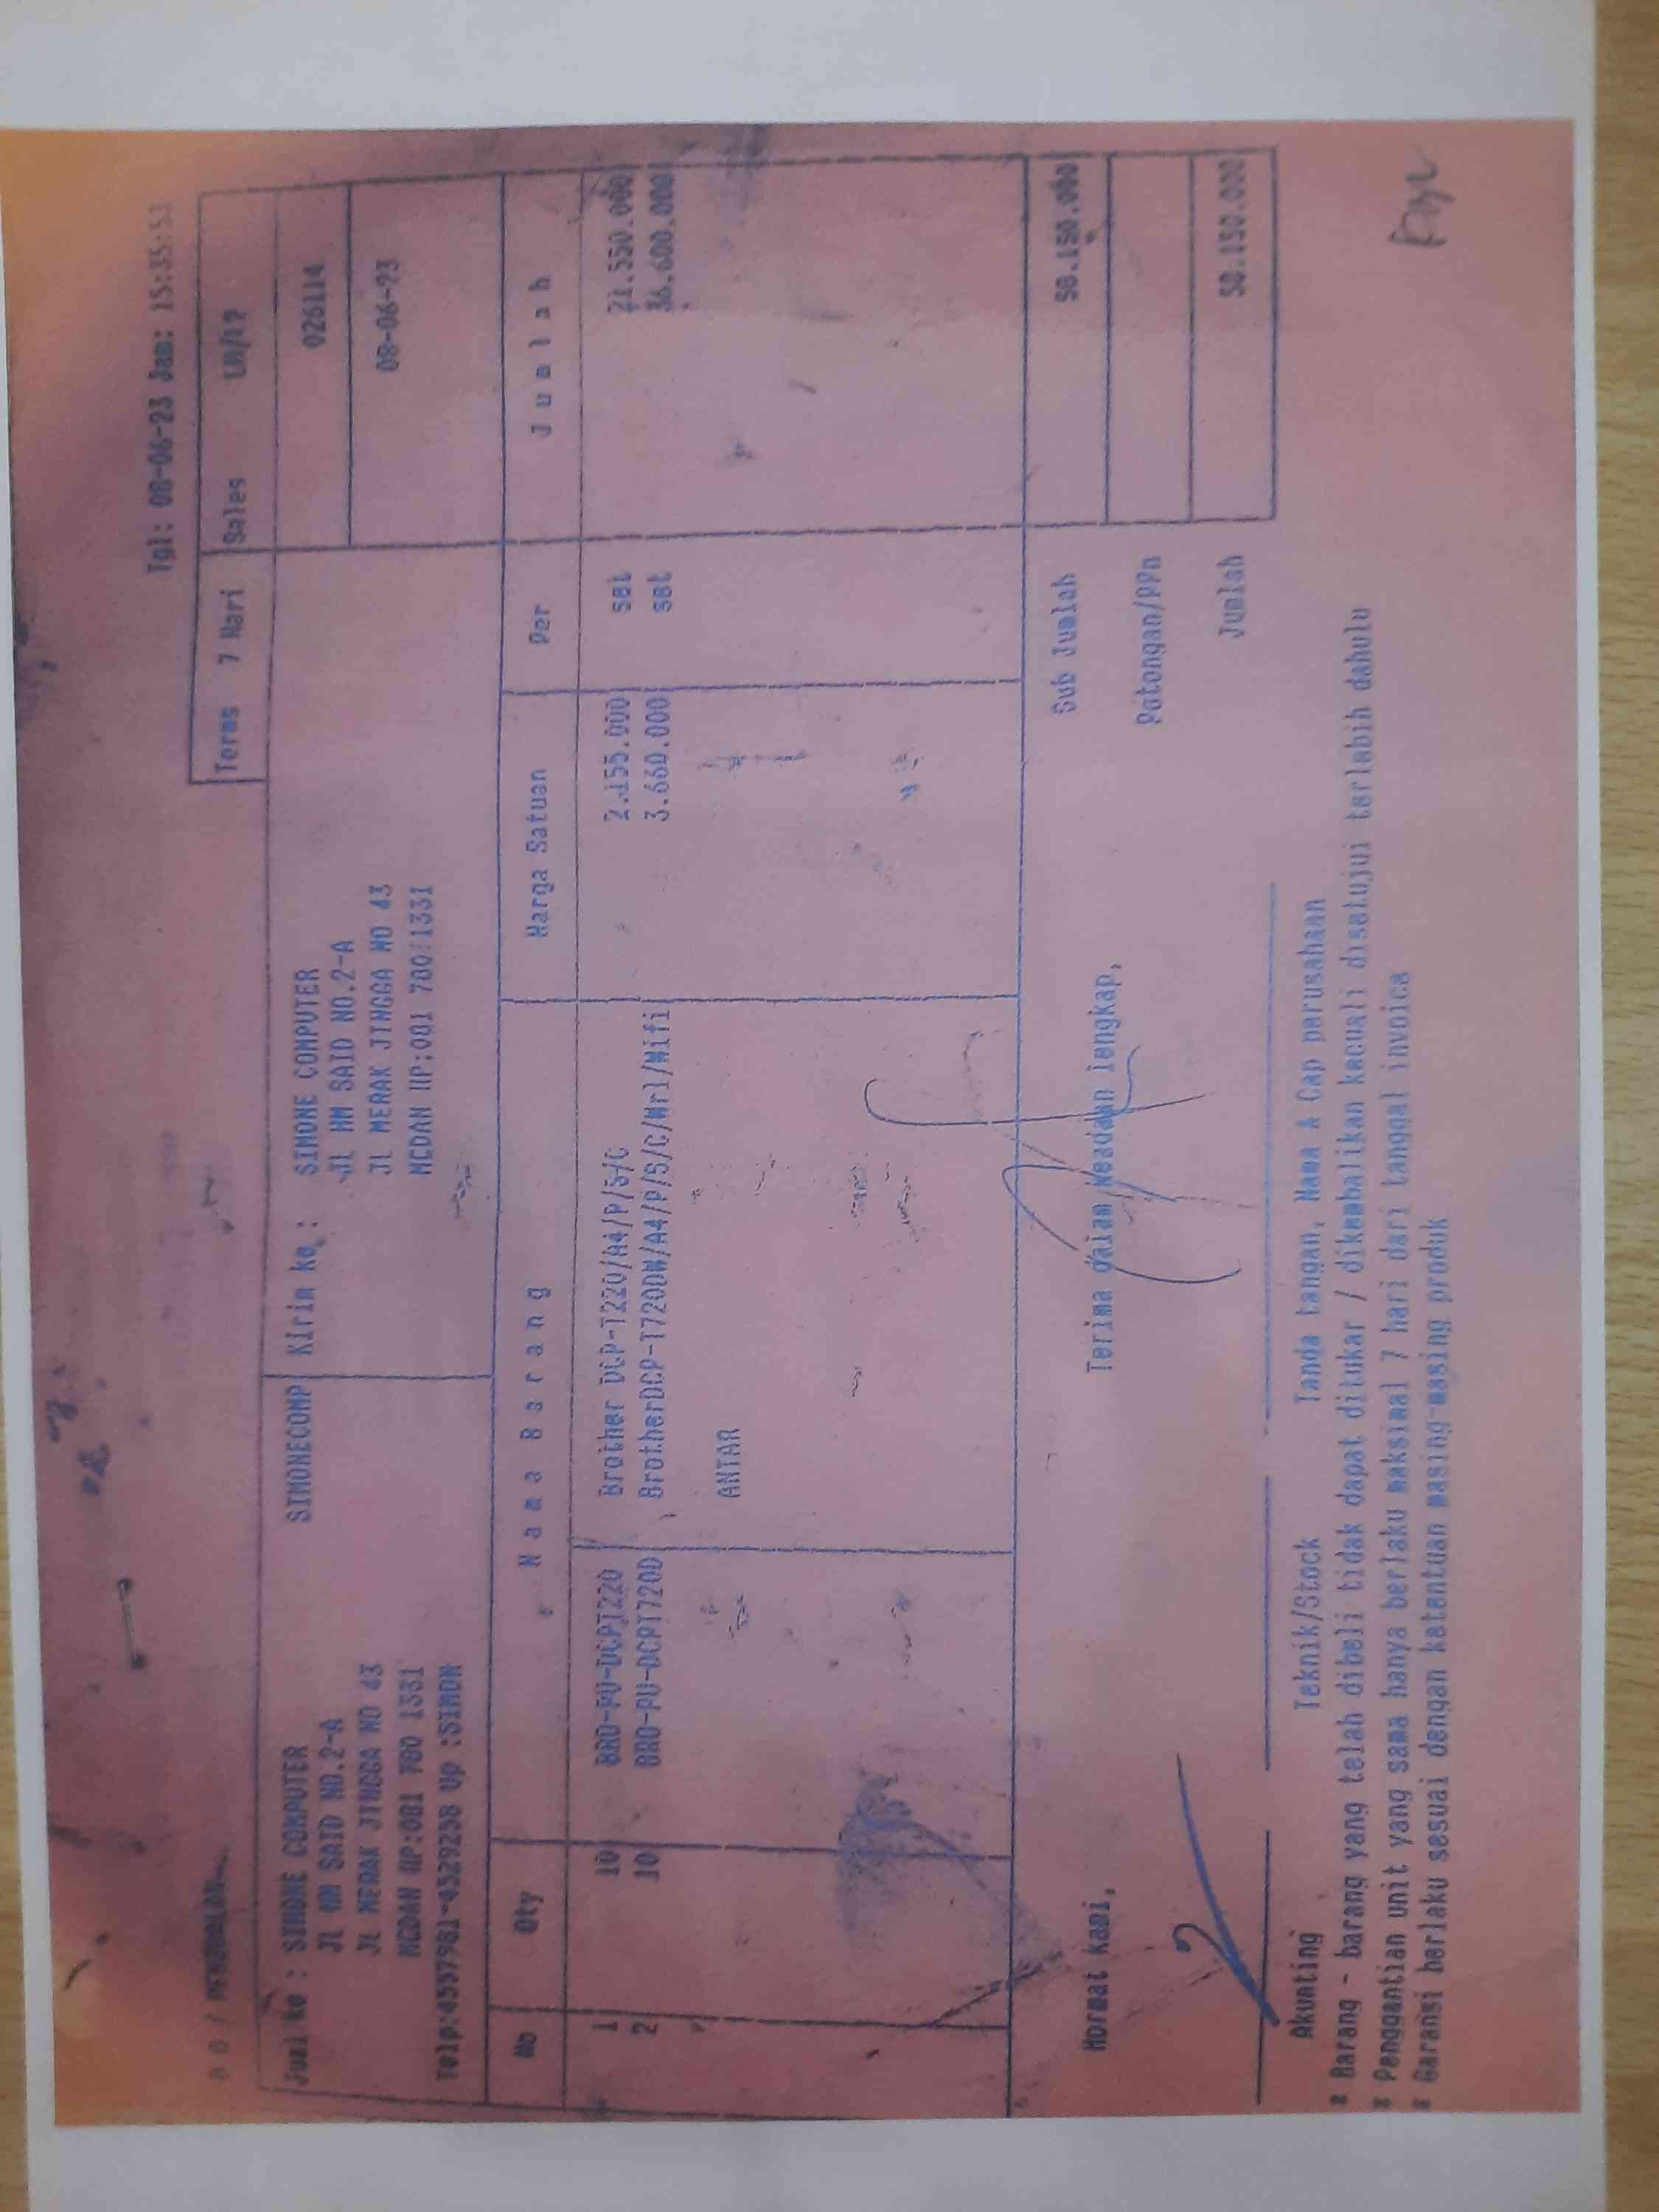 Tgl: 08-06-23 Jam: 15:35:51
Terms 7 Hari Sales
026114
08-06-23
Jual ke : SIMONE COMPUTER SIMONECOMP Kirim ke : SIMONE COMPUTER
JL HM SAID NO.2-A JL HM SAID NO.2-A
JL MERAK JINGGA NO 43 JL MERAK JINGGA NO 43
MEDAN HP:081 780 1331 MEDAN HP:081 780 1331
Telp:4557981-4529258 Up :SIMON
No Qty Nama Barang Harga Satuan Per Jumlah
1 10 BRO-PU-DCPT220 Brother DCP-T220/A4/P/S/C 2.155.000 set 21.550.000
2 10 BRO-PU-DCPT720D BrotherDCP-T720DW/A4/P/S/C/Wrl/Wifi 3.660.000 set 36.600.000
ANTAR
Sub Jumlah 58.150.000
Hormat kami, Terima dalam keadaan lengkap,
Potongan/PPn
Jumlah 58.150.000
Akunting Teknik/Stock Tanda tangan, Nama & Cap perusahaan
* Barang - barang yang telah dibeli tidak dapat ditukar / dikembalikan kecuali disetujui terlebih dahulu
* Penggantian unit yang sama hanya berlaku maksimal 7 hari dari tanggal invoice
* Garansi berlaku sesuai dengan ketentuan masing-masing produk